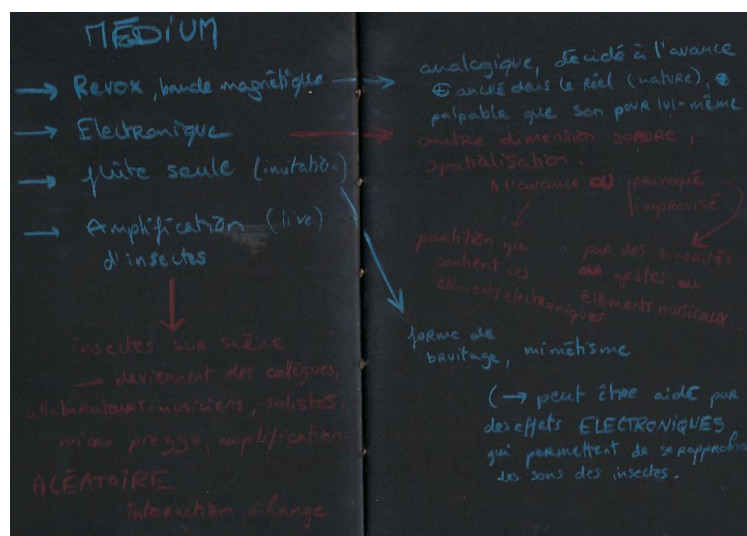 MÉDIUM
→ Revox, bande magnétique →
→ Electronique →
→ flûte seule (imitation)
→ Amplification (live)
d'insectes
insectes sur scène
→ deviennent des collègues,
collaborateurs, musiciens, solistes.
micro piezzo, amplification
ALÉATOIRE
Interaction échange
analogique, décidé à l'avance
⊕ ancré dans le réel (nature), ⊕
palpable que son pour lui-même
autre dimension sonore,
spatialisation.
A l'avance OU provoqué
improvisé
partition qui
contient ces
éléments électroniques
par des
de gestes ou
éléments musicaux...
forme de
bruitage, mimétisme
(→ peut être aidé par
des effets ELECTRONIQUES
qui permettent de se rapprocher
des sons des insectes.